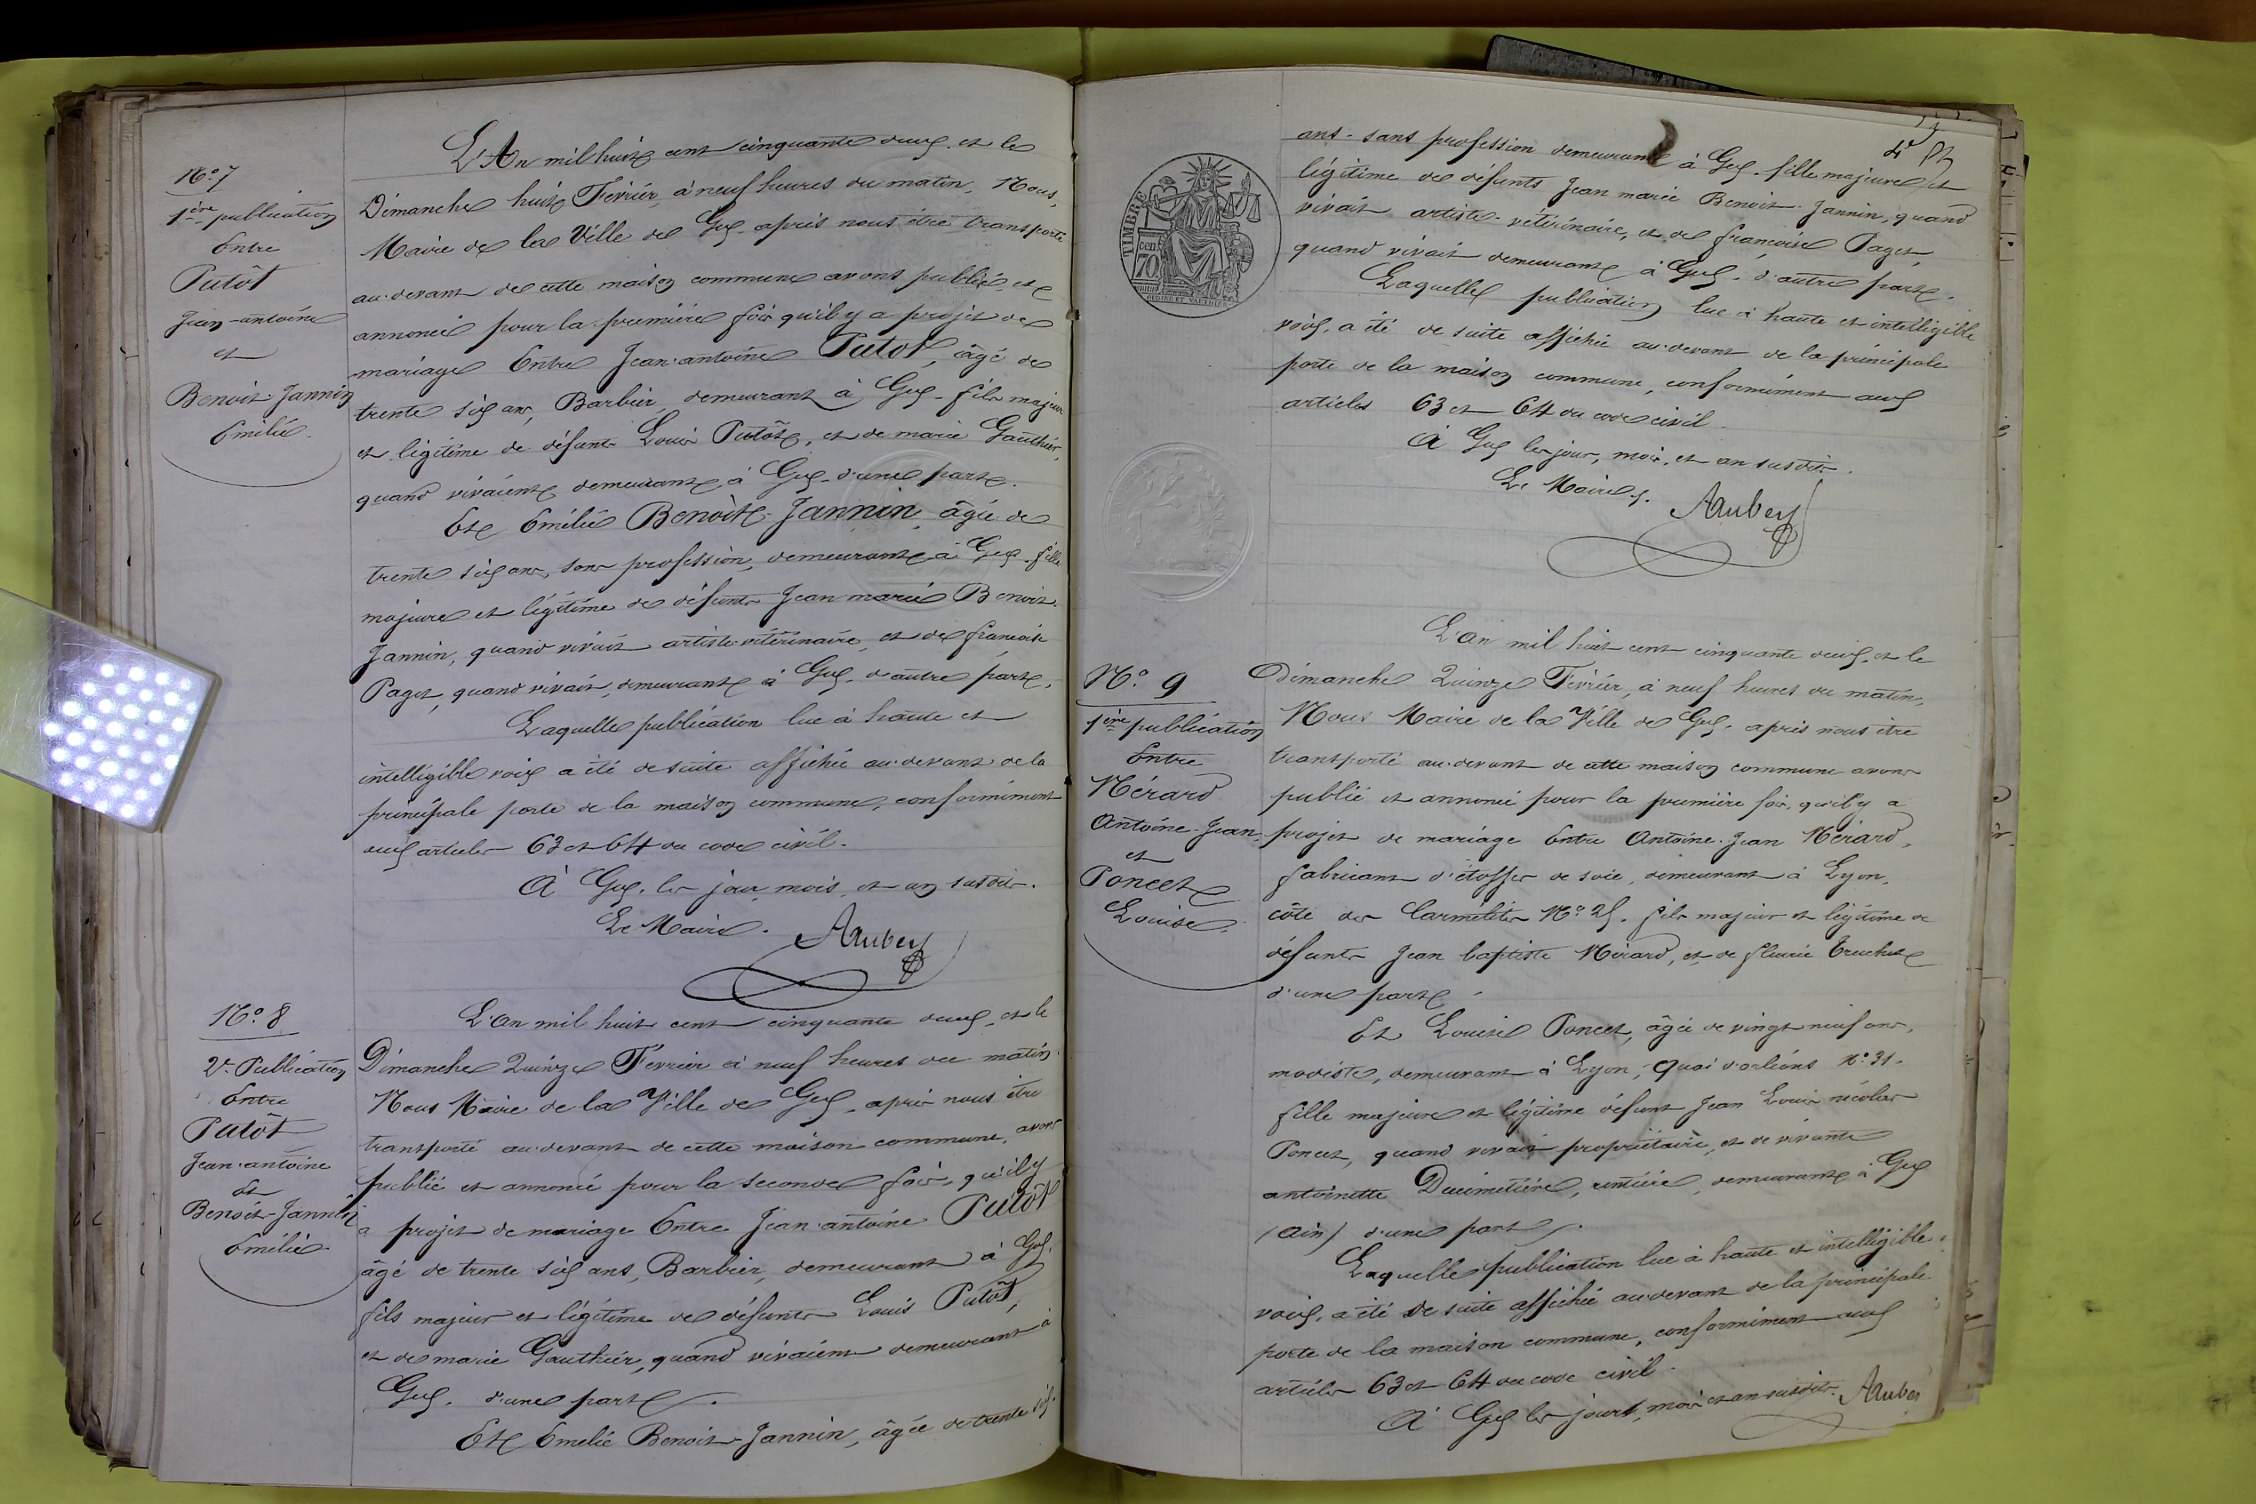 N.º 7
1ère publication
Entre
Putôt
Jean-antoine
et
Benoit-Jannin
Emélie.
L'An mil huit cent cinquante deux, et le
Dimanche huit Février, à neuf heures du matin, Nous,
Maire de la Ville de Gex, après nous être transporté
au devant de cette maison commune avons publié et
annoncé pour la première fois qu'il y a projet de
mariage Entre Jean-antoine Putot, âgé de
trente six ans, Barbier, demeurant à Gex, fils majeur
et légitime de défunts Louis Putôt, et de marie Gauthier,
quand vivaient demeurant à Gex, d'une part.
Et Emélie Benoît-Jannin, âgée de
trente six ans, sans profession, demeurant à Gex, fille
majeure et légitime de défunts Jean marie Benoit-
Jannin, quand vivait artiste-vétérinaire, et de françoise
Paget, quand vivait, demeurant à Gex, d'autre part.
Laquelle publication lue à haute et
intelligible voix a été de suite affichée au devant de la
principale porte de la maison commune, conformément
aux articles 63 et 64 du code civil.
A Gex, les jour, mois, et an susdits.
Le Maire.
Aubey
N.º 8
2e Publication
Entre
Putôt
Jean-antoine
et
Benoit-Jannin
Emélie.
L'An mil huit cent cinquante deux, et le
Dimanche Quinze Février à neuf heures du matin.
Nous Maire de la Ville de Gex, après nous être
transporté au devant de cette maison commune, avons
publié et annoncé pour la seconde fois, qu'il y
a projet de mariage Entre Jean-antoine Putôt
âgé de trente six ans, Barbier, demeurant à Gex,
fils majeur et légitime de défunts Louis Putôt,
et de marie Gauthier, quand vivaient demeurant à
Gex, d'une part.
Et Emelie Benoit-Jannin, âgée de trente six
ans, sans profession demeurant à Gex, fille majeure et
légitime de défunts Jean marie Benoit-Jannin, quand
vivait artiste-vétérinaire, et de françoise Paget,
quand vivait demeurant à Gex, d'autre part.
Laquelle publication lue à haute et intelligible
voix, a été de suite affichée au devant de la principale
porte de la maison commune, conformément aux
articles 63 et 64 du code civil.
A Gex les jour, mois, et an susdits.
Le Maire.
Aubey
TIMBRE
70
N.º 9
1ère publication
Entre
Mérard
Antoine-Jean,
et
Poncet
Louise.
L'an mil huit cent cinquante deux, et le
Dimanche Quinze Février, à neuf heures du matin,
Nous Maire de la Ville de Gex, après nous être
transporté au devant de cette maison commune avons
publié et annoncé pour la première fois, qu'il y a
projet de mariage Entre Antoine-Jean Mérard,
fabricant d'étoffes de soie, demeurant à Lyon,
côte des Carmélites N.º 25, fils majeur et légitime de
défunts Jean baptiste Mérard, et de fleurie Truchet
d'une part.
Et Louise Poncet, âgée de vingt neuf ans,
modiste, demeurant à Lyon, Quai d'orléans N.º 31.
fille majeure et légitime défunt Jean Louis nicolas
Poncet, quand vivait propriétaire, et de vivante
antoinette Ducimetière, rentière, demeurant à Gex
(Ain) d'une part.
Laquelle publication lue à haute et intelligible
voix, a été de suite affichée au devant de la principale
porte de la maison commune, conformément aux
articles 63 et 64 du code civil.
A Gex les jours, mois et an susdits. Aubey